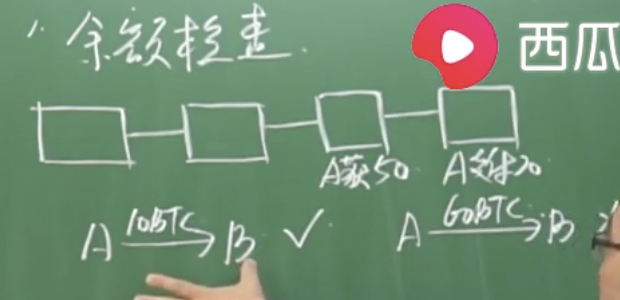 1. 余额检查.
西瓜
A获50 A支付20
A 10BTC B ✓ A 60BTC B